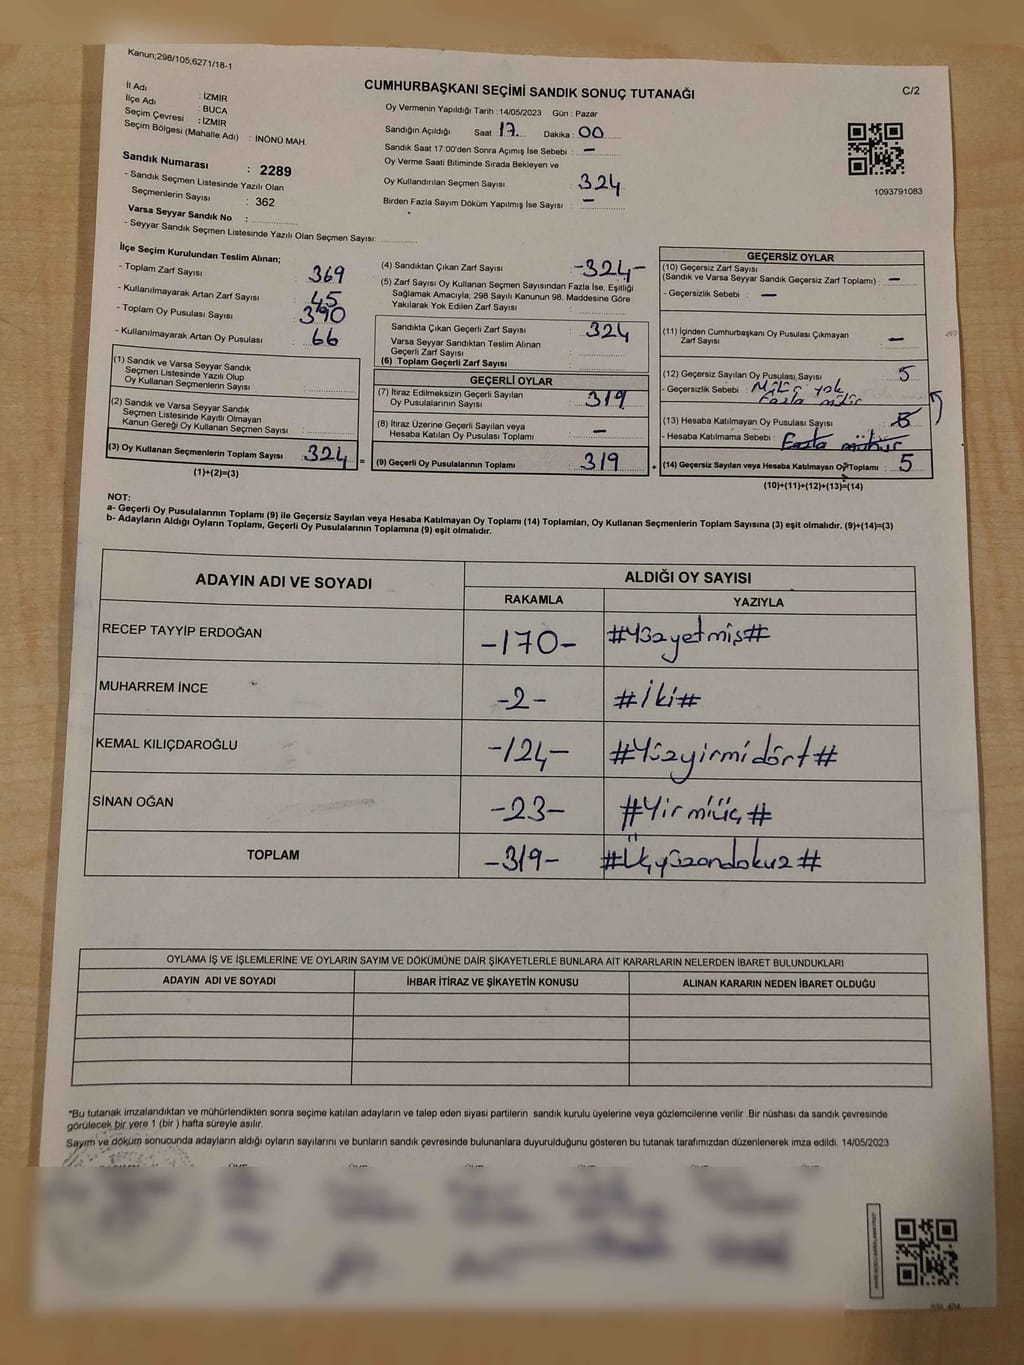 Kanun;298/105,6271/18-1
CUMHURBAŞKANI SEÇİMİ SANDIK SONUÇ TUTANAĞI
C/2
İl Adı : İZMİR
İlçe Adı : BUCA
Seçim Çevresi : İZMİR
Seçim Bölgesi (Mahalle Adı) : İNÖNÜ MAH.
Sandık Numarası : 2289
- Sandık Seçmen Listesinde Yazılı Olan
Seçmenlerin Sayısı : 362
Varsa Seyyar Sandık No :
- Seyyar Sandık Seçmen Listesinde Yazılı Olan Seçmen Sayısı:
Oy Vermenin Yapıldığı Tarih :14/05/2023 Gün : Pazar
Sandığın Açıldığı Saat 17. Dakika : 00
Sandık Saat 17:00'den Sonra Açımış İse Sebebi : –
Oy Verme Saati Bitiminde Sırada Bekleyen ve
Oy Kullandırılan Seçmen Sayısı : 324
Birden Fazla Sayım Döküm Yapılmış İse Sayısı : –
1093791083
İlçe Seçim Kurulundan Teslim Alınan;
- Toplam Zarf Sayısı : 369
- Kullanılmayarak Artan Zarf Sayısı : 45
- Toplam Oy Pusulası Sayısı : 390
- Kullanılmayarak Artan Oy Pusulası : 66
(1) Sandık ve Varsa Seyyar Sandık
Seçmen Listesinde Yazılı Olup
Oy Kullanan Seçmenlerin Sayısı :
(2) Sandık ve Varsa Seyyar Sandık
Seçmen Listesinde Kayıtlı Olmayan
Kanun Gereği Oy Kullanan Seçmen Sayısı :
(3) Oy Kullanan Seçmenlerin Toplam Sayısı : 324 =
(1)+(2)=(3)
(4) Sandıktan Çıkan Zarf Sayısı : -324-
(5) Zarf Sayısı Oy Kullanan Seçmen Sayısından Fazla İse, Eşitliği
Sağlamak Amacıyla; 298 Sayılı Kanunun 98. Maddesine Göre
Yakılarak Yok Edilen Zarf Sayısı :
Sandıkta Çıkan Geçerli Zarf Sayısı : 324
Varsa Seyyar Sandıktan Teslim Alınan
Geçerli Zarf Sayısı :
(6) Toplam Geçerli Zarf Sayısı :
GEÇERLİ OYLAR
(7) İtiraz Edilmeksizin Geçerli Sayılan
Oy Pusulalarının Sayısı : 319
(8) İtiraz Üzerine Geçerli Sayılan veya
Hesaba Katılan Oy Pusulası Toplamı : –
(9) Geçerli Oy Pusulalarının Toplamı : 319 +
GEÇERSİZ OYLAR
(10) Geçersiz Zarf Sayısı
(Sandık ve Varsa Seyyar Sandık Geçersiz Zarf Toplamı) : –
- Geçersizlik Sebebi : –
(11) İçinden Cumhurbaşkanı Oy Pusulası Çıkmayan
Zarf Sayısı : –
(12) Geçersiz Sayılan Oy Pusulası Sayısı : 5
- Geçersizlik Sebebi : Mühür yok
Fazla mühür
(13) Hesaba Katılmayan Oy Pusulası Sayısı : 5
- Hesaba Katılmama Sebebi : Fazla mühür
(14) Geçersiz Sayılan veya Hesaba Katılmayan Oy Toplamı : 5
(10)+(11)+(12)+(13)=(14)
NOT:
a- Geçerli Oy Pusulalarının Toplamı (9) ile Geçersiz Sayılan veya Hesaba Katılmayan Oy Toplamı (14) Toplamları, Oy Kullanan Seçmenlerin Toplam Sayısına (3) eşit olmalıdır. (9)+(14)=(3)
b- Adayların Aldığı Oyların Toplamı, Geçerli Oy Pusulalarının Toplamına (9) eşit olmalıdır.
ADAYIN ADI VE SOYADI
ALDIĞI OY SAYISI
RAKAMLA YAZIYLA
RECEP TAYYİP ERDOĞAN -170- #Yüzyetmiş#
MUHARREM İNCE -2- #İki#
KEMAL KILIÇDAROĞLU -124- #Yüzyirmidört#
SİNAN OĞAN -23- #Yirmiüç#
TOPLAM -319- #Üçyüzondokuz#
OYLAMA İŞ VE İŞLEMLERİNE VE OYLARIN SAYIM VE DÖKÜMÜNE DAİR ŞİKAYETLERLE BUNLARA AİT KARARLARIN NELERDEN İBARET BULUNDUKLARI
ADAYIN ADI VE SOYADI İHBAR İTİRAZ VE ŞİKAYETİN KONUSU ALINAN KARARIN NEDEN İBARET OLDUĞU
*Bu tutanak imzalandıktan ve mühürlendikten sonra seçime katılan adayların ve talep eden siyasi partilerin sandık kurulu üyelerine veya gözlemcilerine verilir .Bir nüshası da sandık çevresinde
görülecek bir yere 1 (bir ) hafta süreyle asılır.
Sayım ve döküm sonucunda adayların aldığı oyların sayılarını ve bunların sandık çevresinde bulunanlara duyurulduğunu gösteren bu tutanak tarafımızdan düzenlenerek imza edildi. 14/05/2023